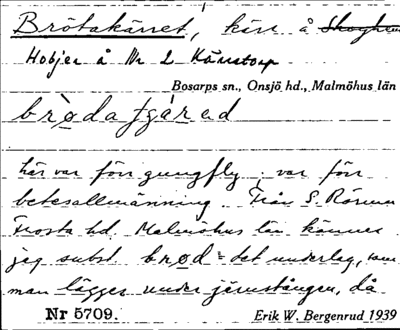 Brötakärret, kärr å Skoghem
Hobjer å Nr 2 Känstorp
Bosarps sn., Onsjö hd., Malmöhus län
brødatjárəd
här var förr gungfly; var förr
betesallmänning. Från S. Rörum
Frosta hd. Malmöhus län kännes
jag subst. brød = det underlag, som
man lägger under järnstången, då
Nr 5709. Erik W. Bergenrud 1939